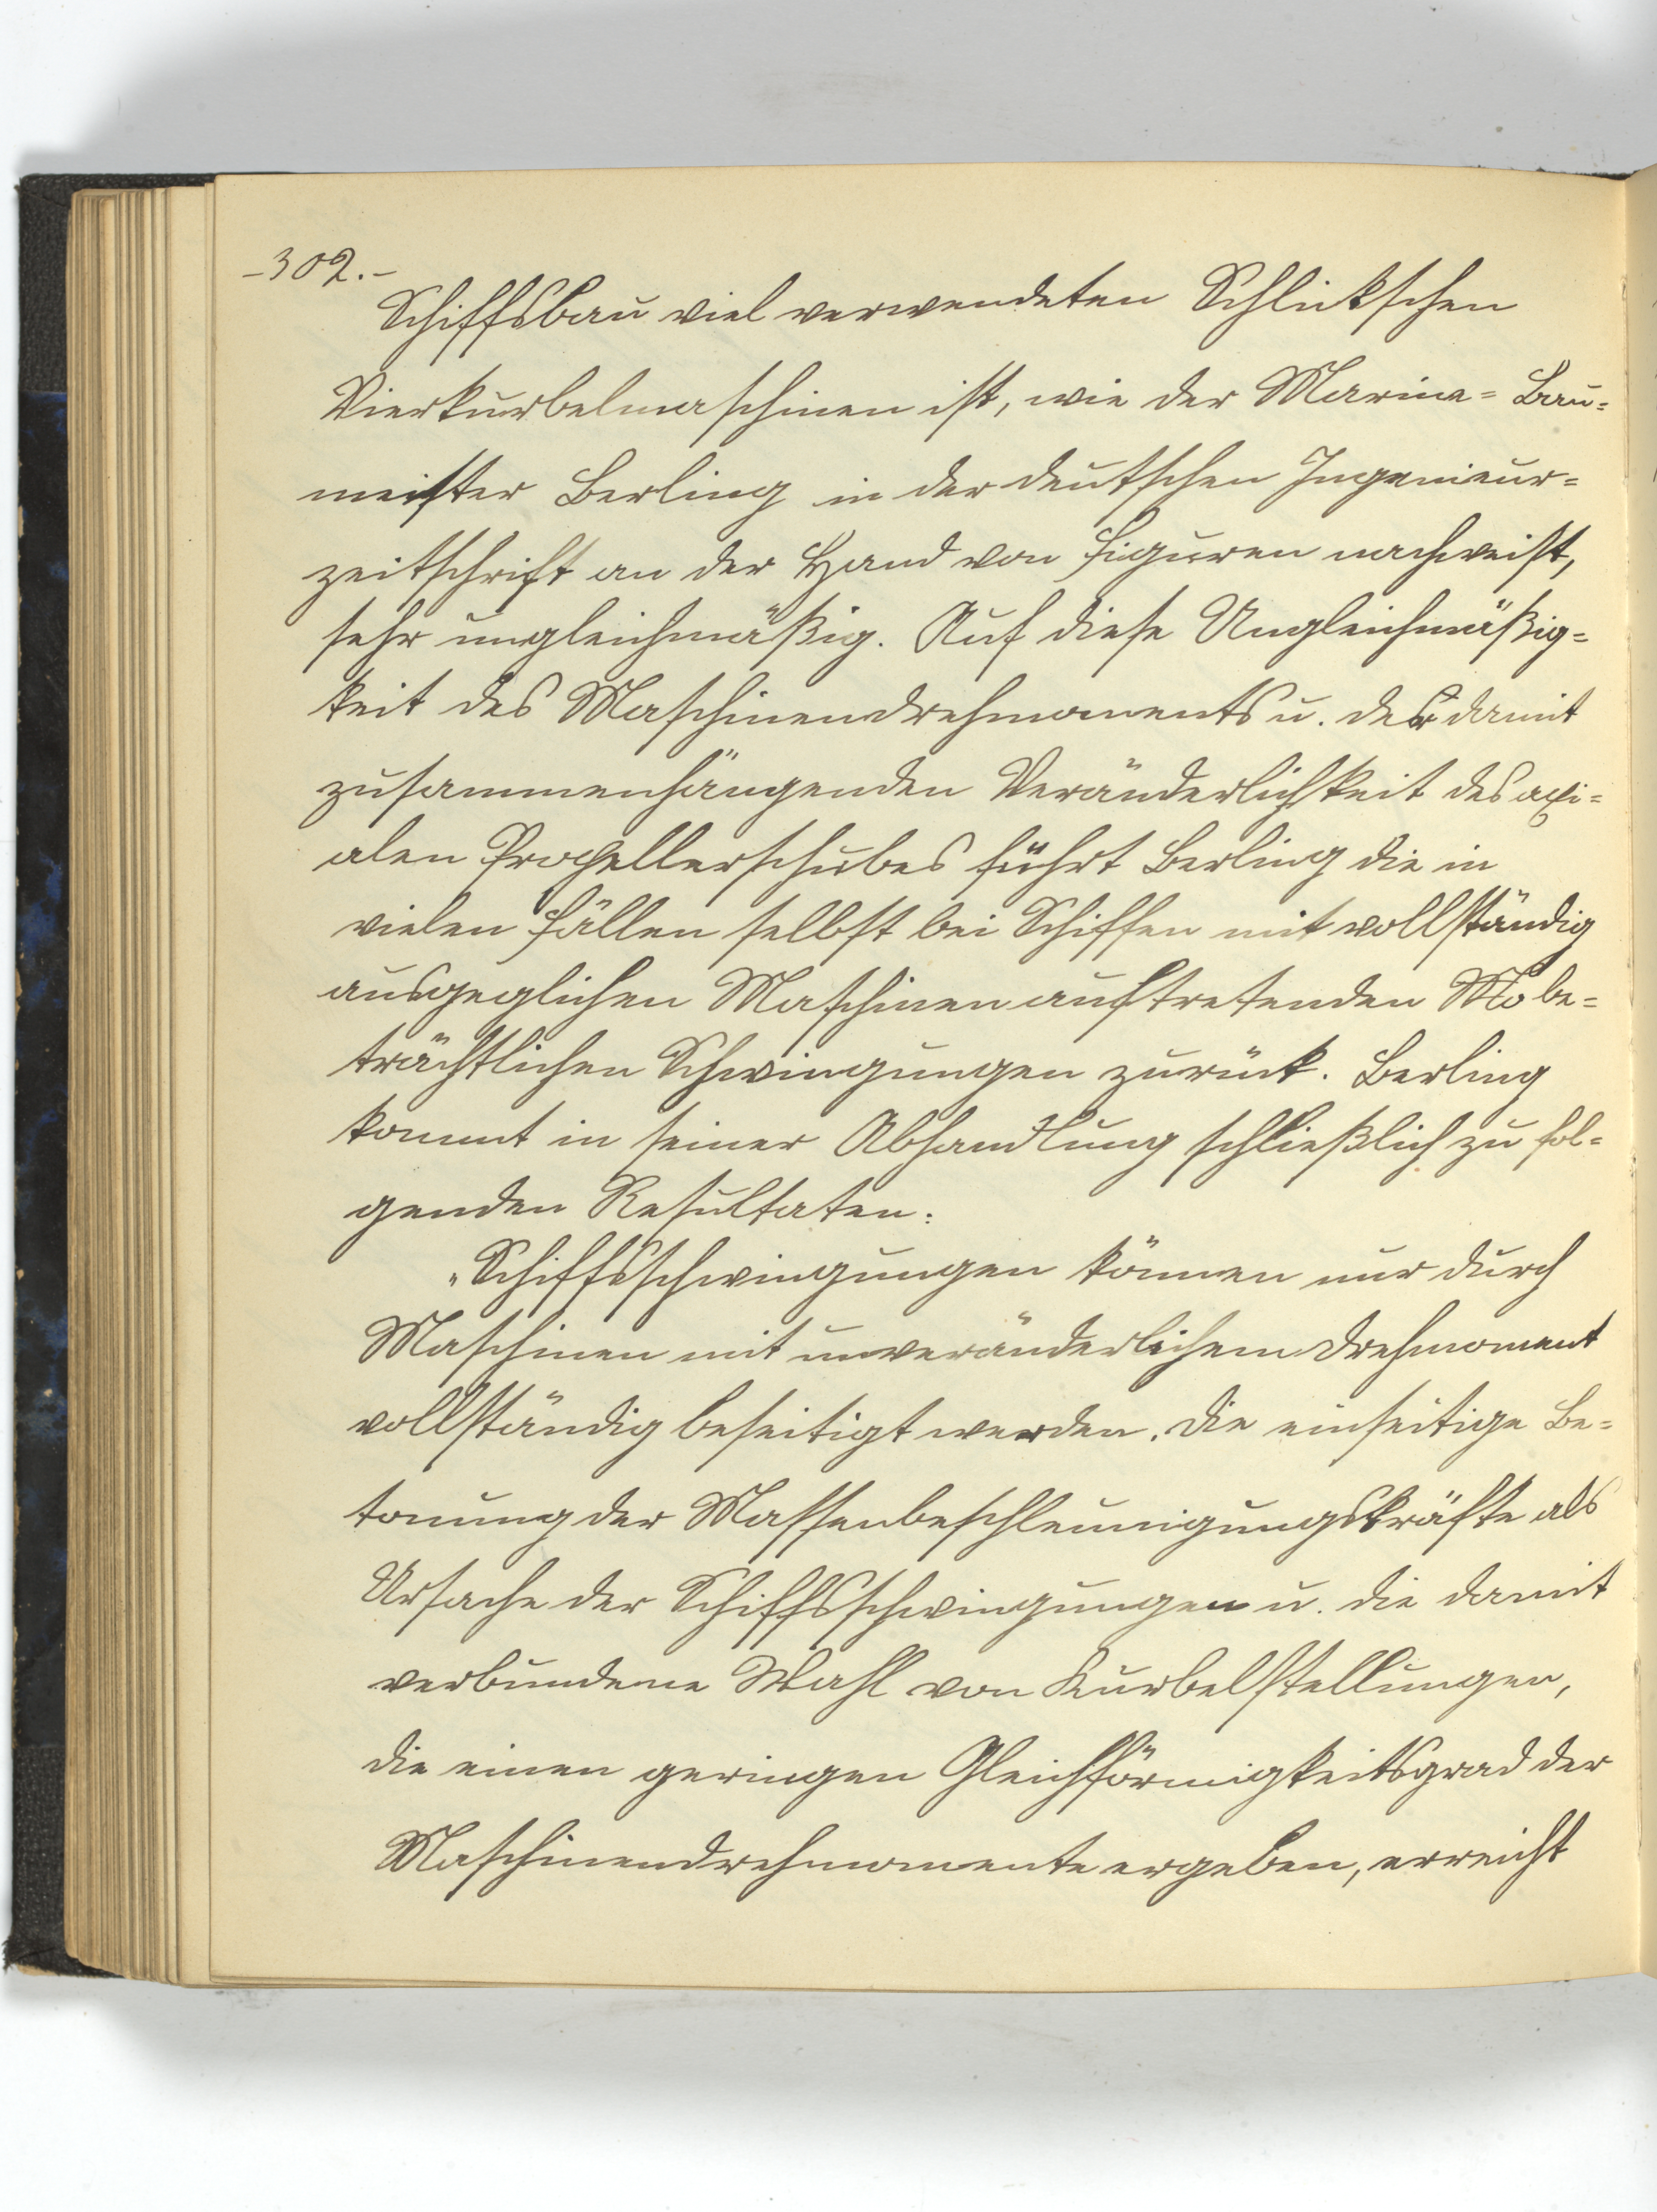 -302.-
Schiffsbau viel verwendeten Schlickschen
Vierkurbelmaschinen ist, wie der Marine= Bau=
meister Berling in der deutschen Ingenieur=
zeitschrift an der Hand von Figuren nachweist,
sehr ungleichmäßig. Auf diese Ungleichmäßig=
keit des Maschinendrehmoments u. der damit
zusammenhängenden Veränderlichkeit des axi=
alen Propellerschubes führt Berling die in
vielen Fällen selbst bei Schiffen mit vollständig
ausgeglichen Maschinen auftretenden be=
trächtlichen Schwingungen zurück. Berling
kommt in seiner Abhandlung schließlich zu fol=
genden Resultaten:
"Schiffsschwingungen können nur durch
Maschinen mit unveränderlichem Drehmoment
vollständig beseitigt werden. Die einseitige Be=
tonung der Massenbeschleunigungskräfte als
Ursache der Schiffsschwingungen u. die damit
verbundene Wahl von Kurbelstellungen,
die einen geringen Gleichförmigkeitsgrad der
Maschinendrehmomente ergeben, erreicht